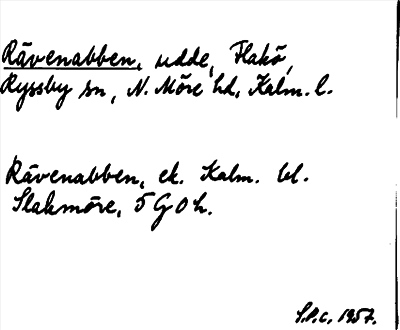 Rävenabben, udde, Flakö,
Ryssby sn, N. Möre hd, Kalm. l.
Rävenabben, ek. Kalm. bl.
Slakmöre, 5 G 0 h.
S.P.c. 1957.